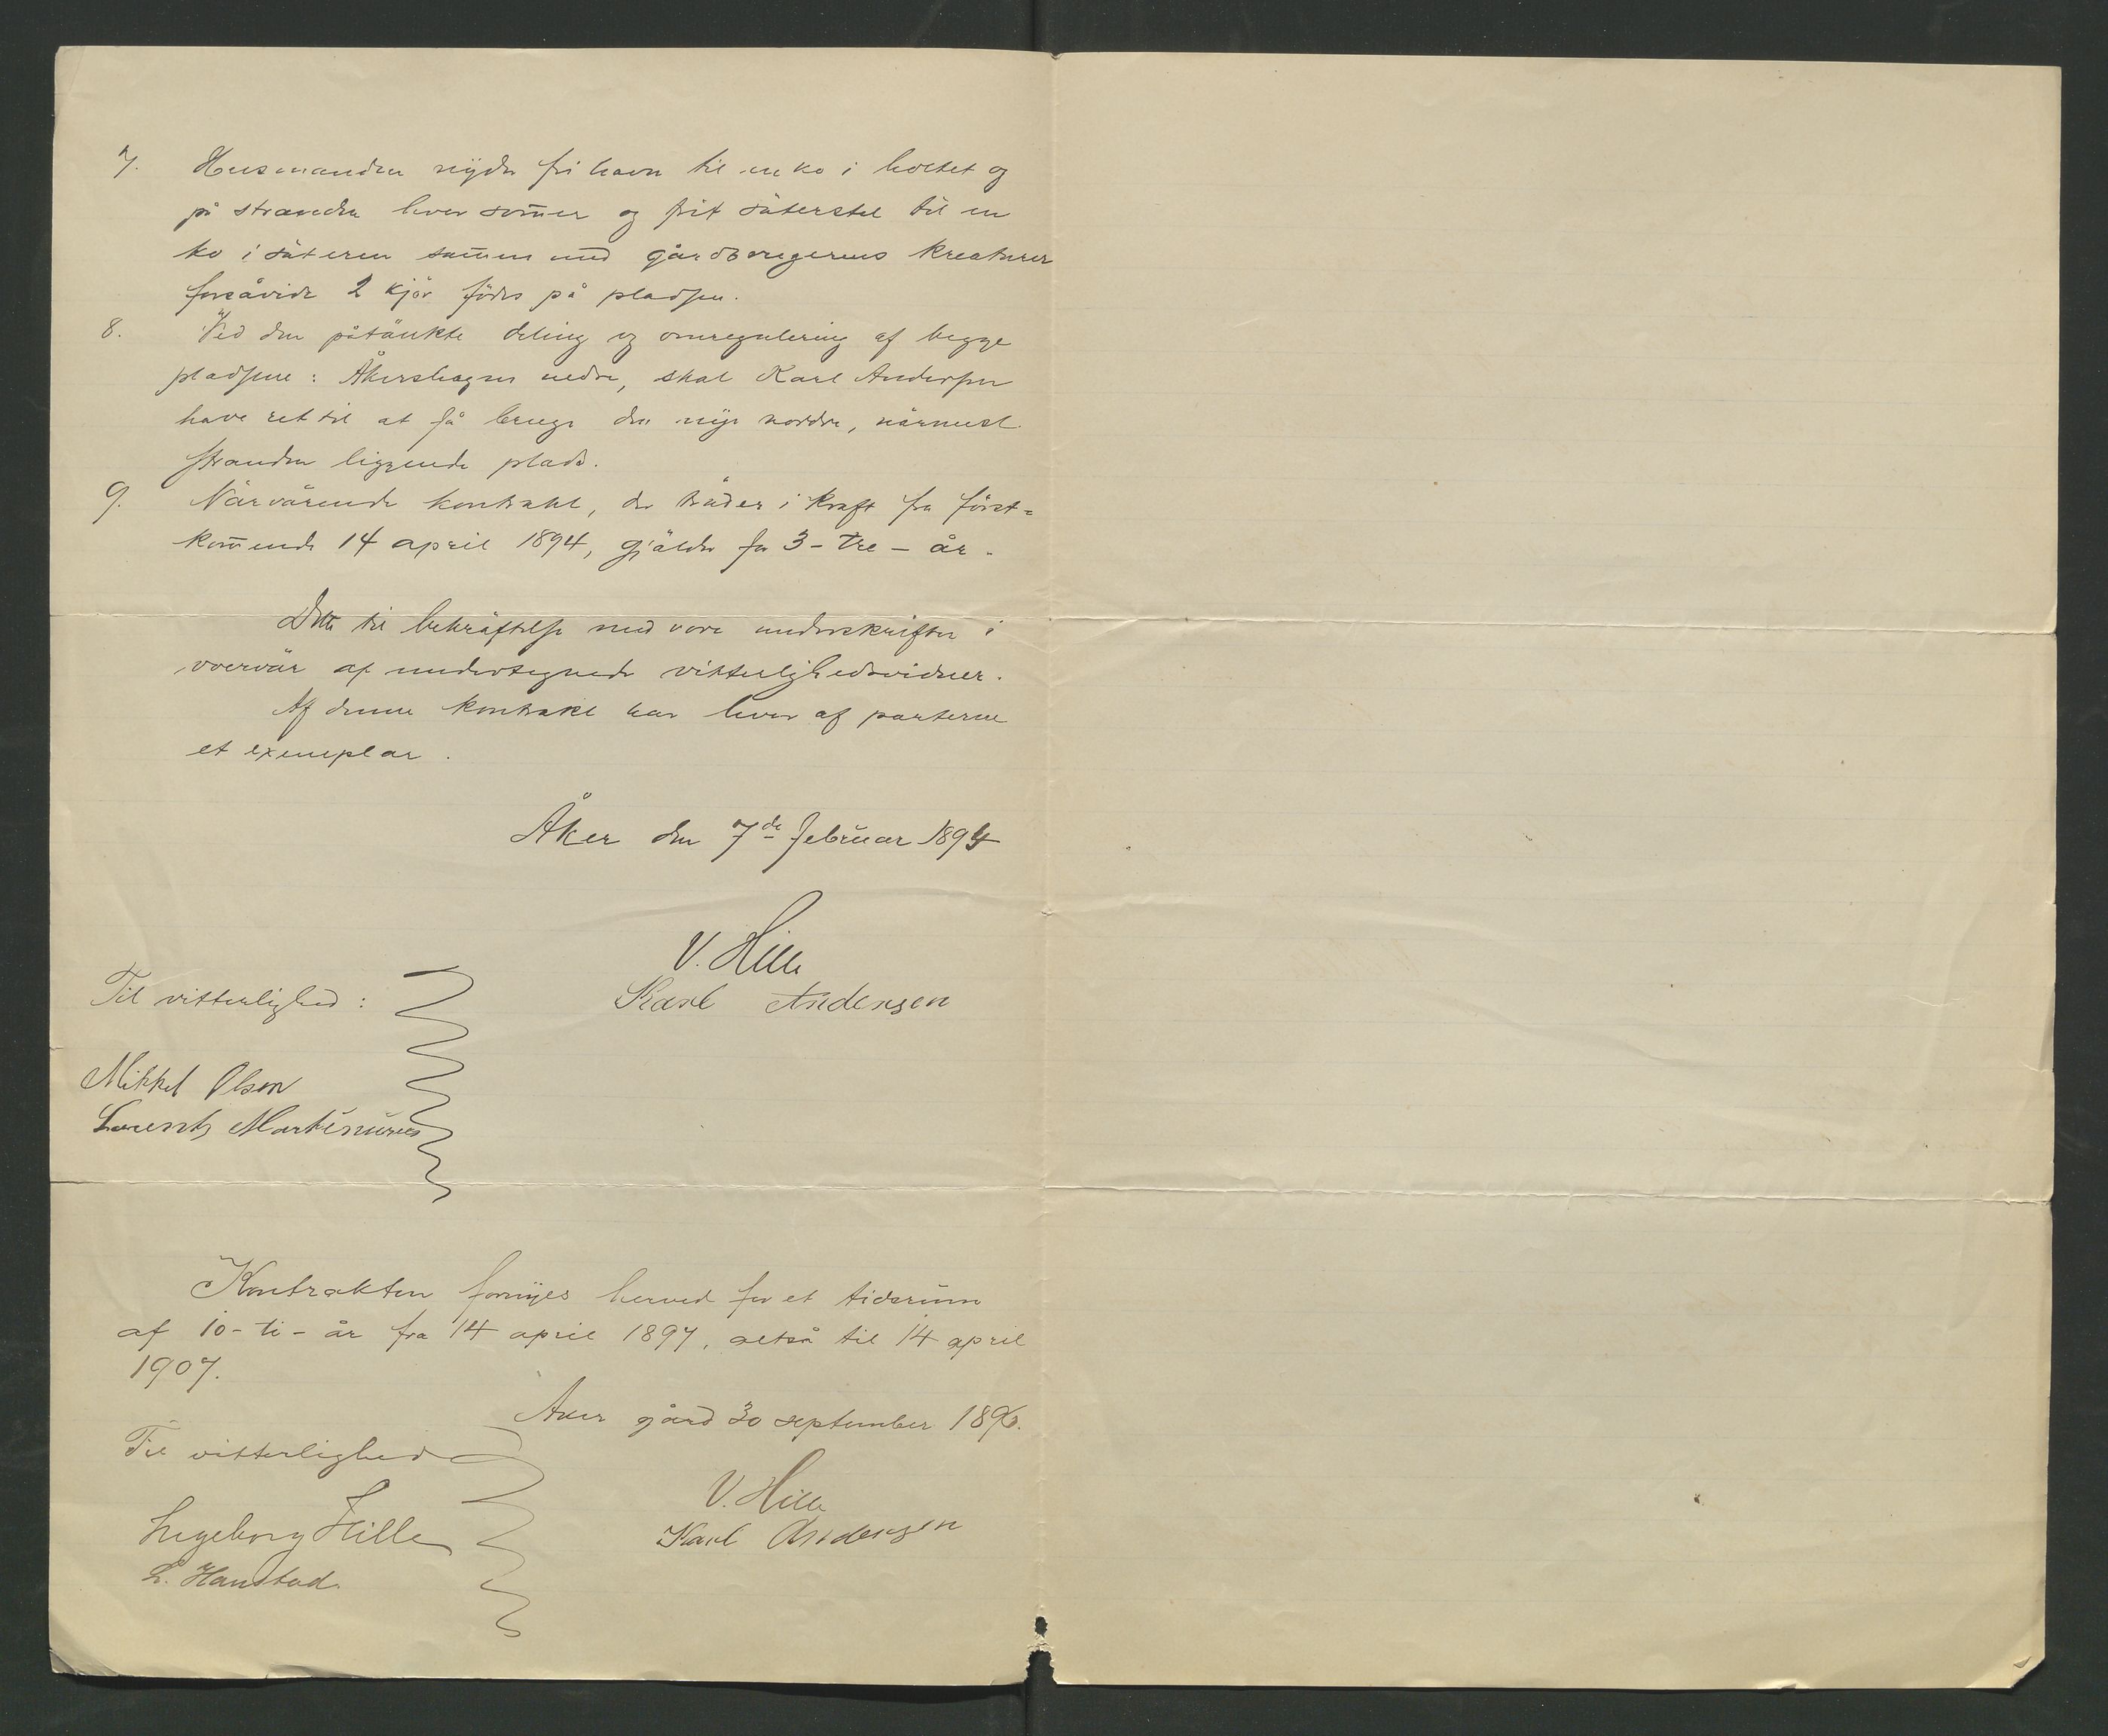 7. Husmanden nyder fri havn til en ko i holtet og
på stranden hver som̄er og frit säterstel til en
ko i säteren sam̄en med gårdbrugerens kreaturer
forsåvidt 2 kjör födes på pladsen.
8. Ved den påtänkte deling og omregulering af begge
pladsene: Åkershagen nedre, skal Karl Andersen
have ret til at få bruge den nye nordre, närmest
stranden liggende plads.
9. Närvärende kontrakt, der träder i kraft fra först=
kom̄ende 14 april 1894, gjälder for 3 - tre - år.
Dette til bekräftelse med vore underskrifter i
overvär af undertegnede vitterlighedsvidner.
Af denne kontrakt har hver af parterne
et exemplar.
Åker den 7de februar 1894
V. Hille
Karl Andersen
Til vitterlighed:
Mikkel Olsen
Lorents Martinusen
Kontrakten fornyes herved for et tidsrum
af 10 - ti - år fra 14 april 1897, altså til 14 april
1907.
Aker gård 30 september 1896.
Til vitterlighed
V. Hille
Karl Andersen
Ingeborg Hille
L. Hanstad